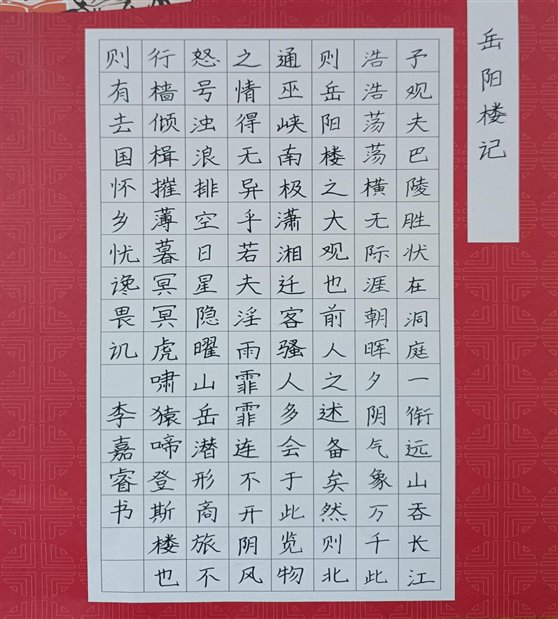 岳阳楼记
予观夫巴陵胜状在洞庭一衔远山吞长江
浩浩荡荡横无际涯朝晖夕阴气象万千此
则岳阳楼之大观也前人之述备矣然则北
通巫峡南极潇湘迁客骚人多会于此览物
之情得无异乎若夫淫雨霏霏连不开阴风
怒号浊浪排空日星隐曜山岳潜形商旅不
行樯倾楫摧薄暮冥冥虎啸猿啼登斯楼也
则有去国怀乡忧谗畏讥 李嘉睿书